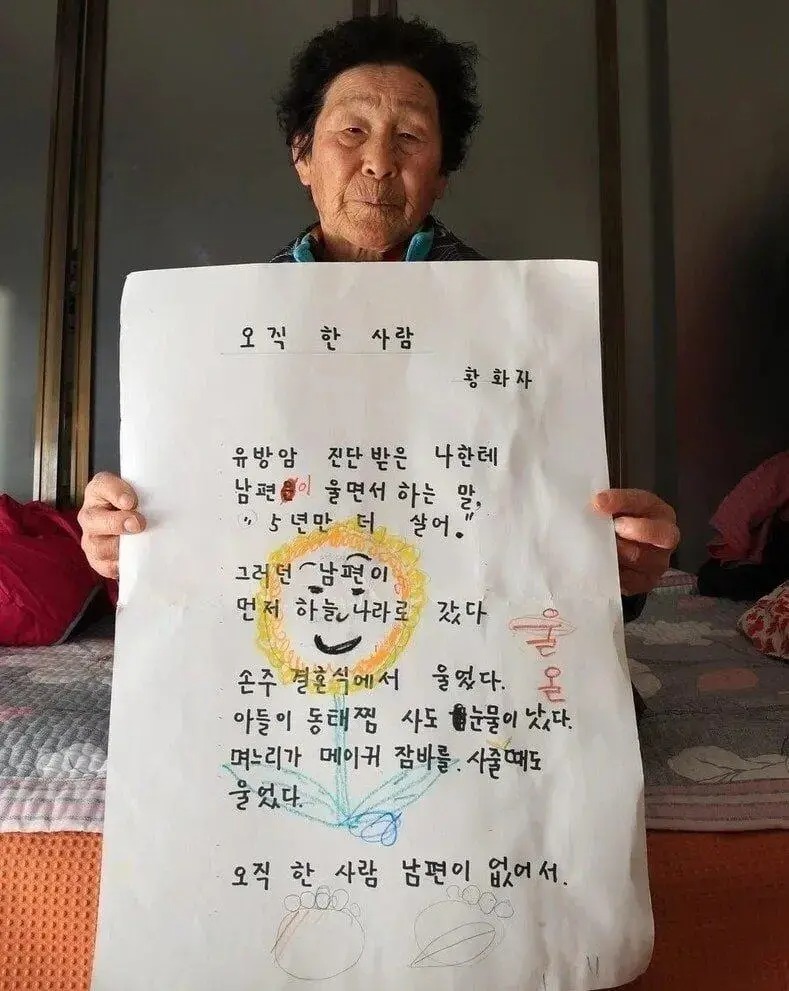 오직 한 사람
황화자
유방암 진단 받은 나한테
남편이 울면서 하는 말,
"5년만 더 살어."
그러던 남편이
먼저 하늘나라로 갔다
울
올
손주 결혼식에서 울었다.
아들이 동태찜 사도 눈물이 났다.
며느리가 메이커 잠바를 사줄 때도
울었다.
오직 한 사람 남편이 없어서.